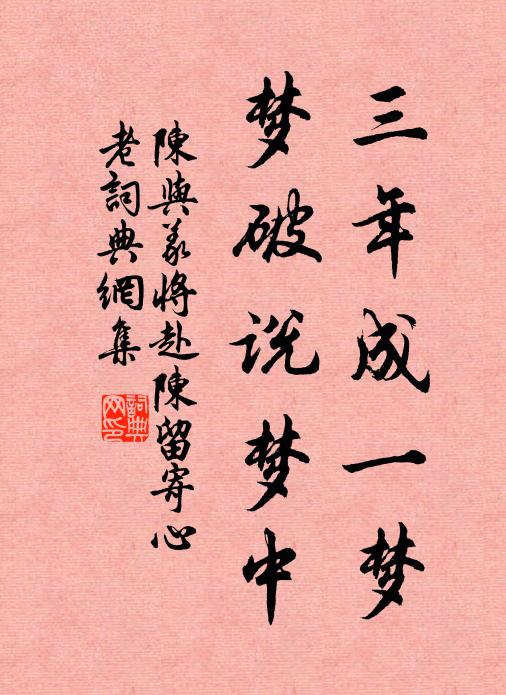 三年成一梦
梦破说梦中
陳與義将赴陳留寄心
老詞典網集
詞典
网印